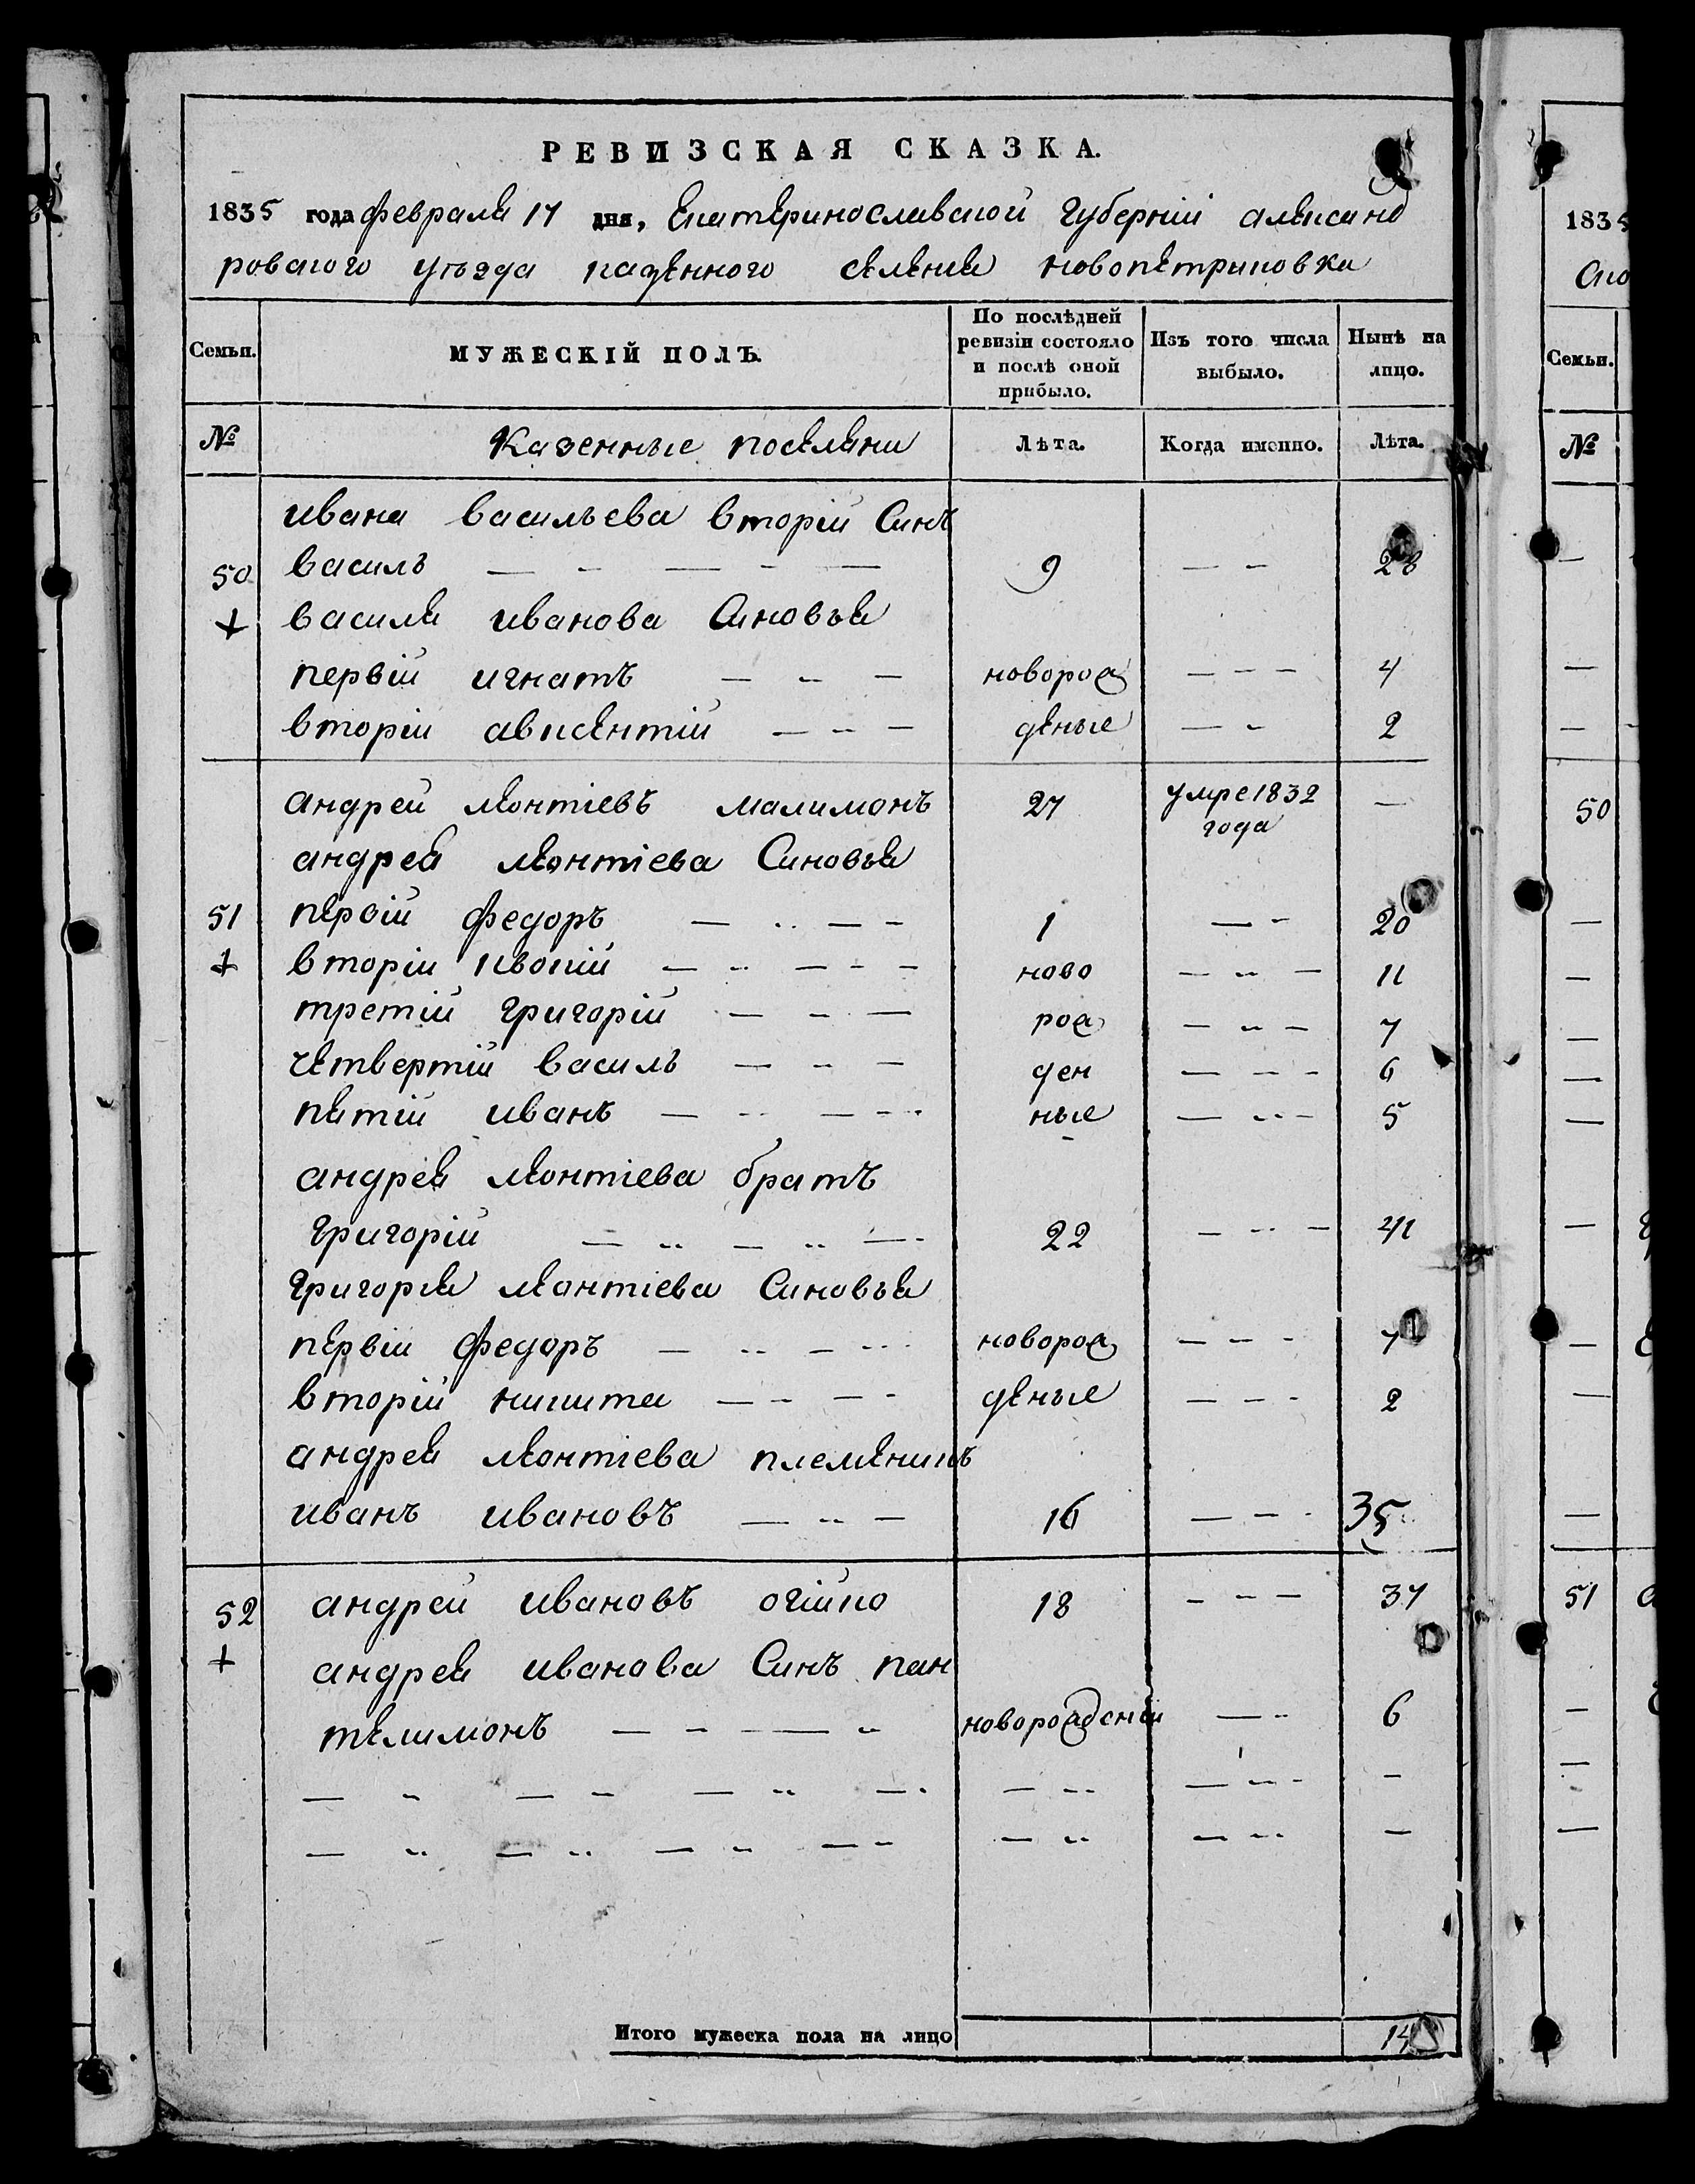 РЕВИЗСКАЯ СКАЗКА.
1835 года февраля 17 дня, Екатеринославской губерніи александ
ровского уъзда казенного селения новопетриковка
Семьи. МУЖЕСКІЙ ПОЛЪ. По послѣдней ревизіи состояло и послѣ оной прибыло. Изъ того числа выбыло. Нынѣ на лицо.
№ Казенные поселяни Лѣта. Когда именно. Лѣта.
ивана васильева вторій Синъ
50 василь — - — - — 9 — - 28
+ василя иванова Синовья
первій игнатъ — - — новорож — - — 4
вторій авксентій — - — деные — - 2
андрей леонтіевъ малимонъ 27 умре 1832 года —
андрея леонтіева Синовья
51 первій федоръ — - — - 1 — - 20
+ вторій прокій — - — - — ново — - — 11
третій григорій — - — рож — - — 7
четвертій василь — - — ден — - - 6
пятій иванъ — - — - ные — - - 5
андрея леонтіева братъ
григорій — - — - — 22 — - — 41
григорія леонтіева Синовья
первій федоръ — - — - новорож — - - 7
вторій никита — - — - деные — - - 2
андрея леонтіева племеникъ
иванъ ивановъ — - — 16 — - - 35
52 андрей ивановъ огійко 18 - - — 37
+ андрея иванова Синъ пан
телимонъ — - — - новорожденій — - 6
— - — - — - — - — - — - - -
— - — - — - — - — - — - —
Итого мужеска пола на лицо 14
1835
Ско
Семьи.
№
50
51